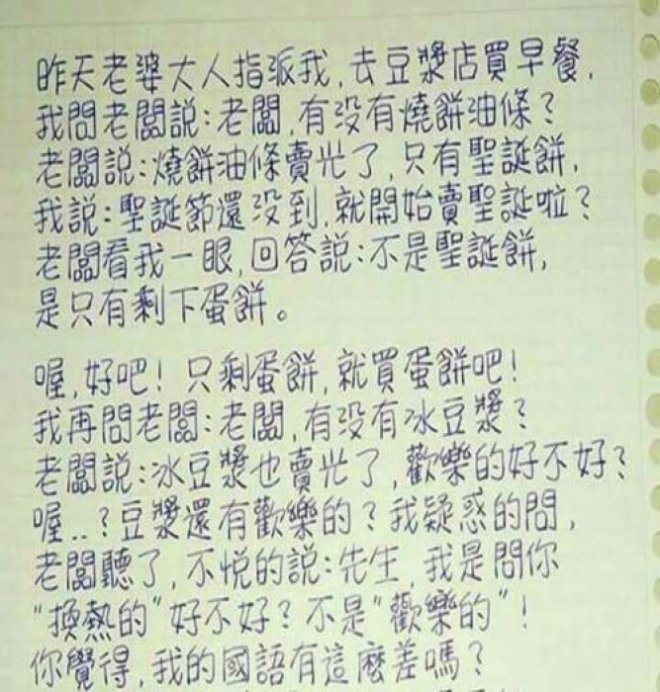 昨天老婆大人指派我,去豆漿店買早餐,
我問老闆說:老闆,有没有燒餅油條?
老闆說:燒餅油條賣光了,只有聖誕餅,
我說:聖誕節還没到,就開始賣聖誕啦?
老闆看我一眼,回答說:不是聖誕餅,
是只有剩下蛋餅。
喔,好吧!只剩蛋餅,就買蛋餅吧!
我再問老闆:老闆,有没有冰豆漿?
老闆說:冰豆漿也賣光了,歡樂的好不好?
喔..?豆漿還有歡樂的?我疑惑的問,
老闆聽了,不悅的說:先生,我是問你
"換熱的"好不好?不是"歡樂的"!
你覺得,我的國語有這麼差嗎?